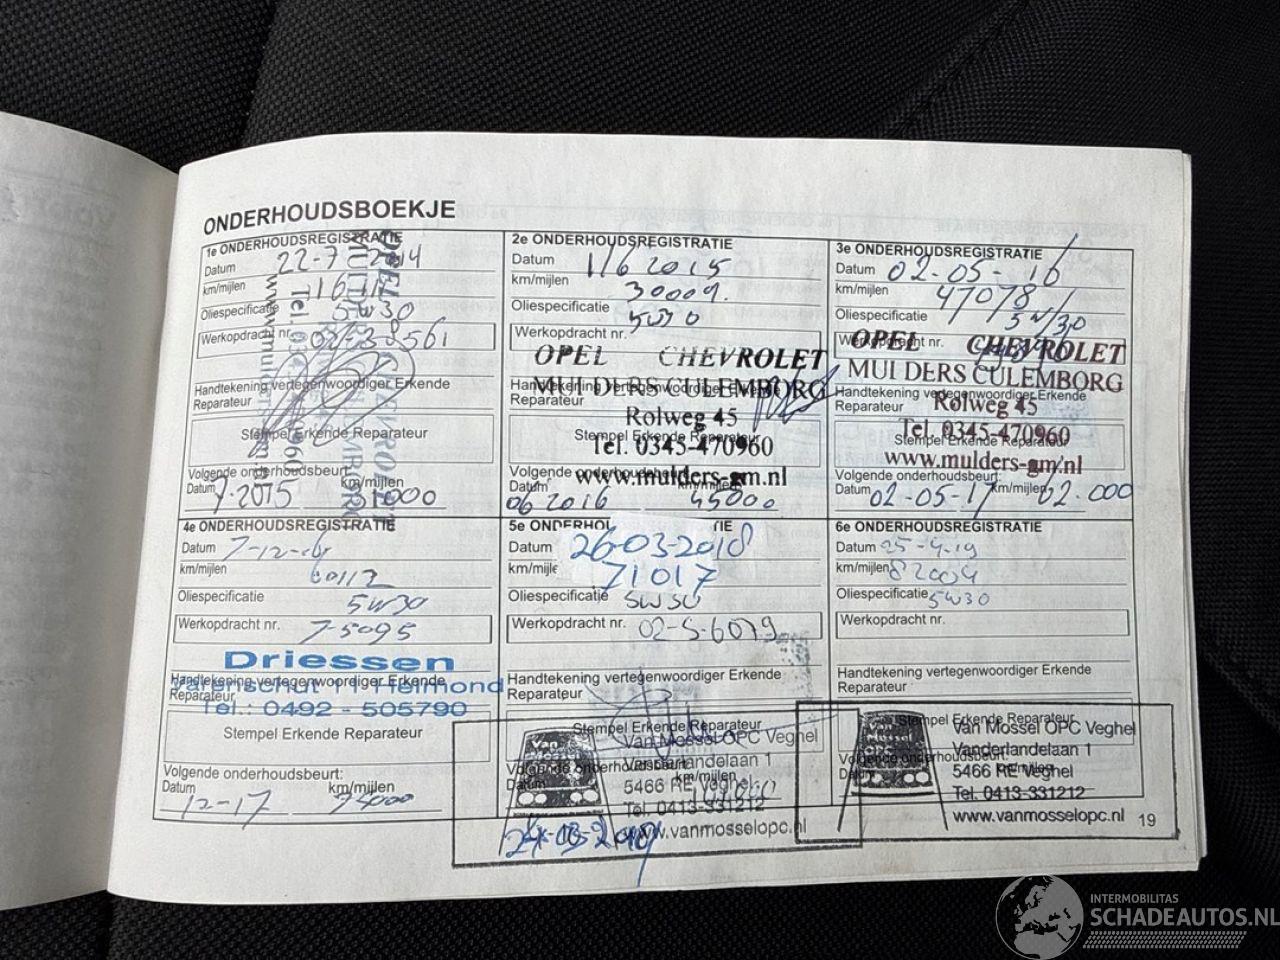 ONDERHOUDSBOEKJE
1e ONDERHOUDSREGISTRATIE
Datum 22-7-2014
km/mijlen
Oliespecificatie 5w30
Werkopdracht nr.
Handtekening vertegenwoordiger Erkende
Reparateur
Stempel Erkende Reparateur
Volgende onderhoudsbeurt:
Datum 7-2015 km/mijlen
2e ONDERHOUDSREGISTRATIE
Datum 1/6 2015
km/mijlen 30009.
Oliespecificatie 5w30
Werkopdracht nr.
OPEL CHEVROLET
MULDERS CULEMBORG
Handtekening vertegenwoordiger Erkende
Reparateur
Rolweg 45
Stempel Erkende Reparateur
Tel. 0345-470960
Volgende onderhoudsbeurt:
www.mulders-gm.nl
Datum 06 2016 km/mijlen 45000
3e ONDERHOUDSREGISTRATIE
Datum 02-05-16
km/mijlen 47078
Oliespecificatie 5w/30
Werkopdracht nr.
OPEL CHEVROLET
MULDERS CULEMBORG
Handtekening vertegenwoordiger Erkende
Reparateur
Rolweg 45
Tel. 0345-470960
Stempel Erkende Reparateur
www.mulders-gm.nl
Volgende onderhoudsbeurt:
Datum 02-05-17 km/mijlen 62.000
4e ONDERHOUDSREGISTRATIE
Datum 7-12-16
km/mijlen 60112
Oliespecificatie 5w30
Werkopdracht nr. 7-5095
Driessen
Handtekening vertegenwoordiger Erkende
Varenschut 11 Helmond
Reparateur
Tel.: 0492 - 505790
Stempel Erkende Reparateur
Volgende onderhoudsbeurt:
Datum 12-17 km/mijlen 75000
5e ONDERHOUDSREGISTRATIE
Datum 26-03-2018
km/mijlen 71017
Oliespecificatie 5w30
Werkopdracht nr. 02-5-6079
Handtekening vertegenwoordiger Erkende
Reparateur
Stempel Erkende Reparateur
Van Mossel OPC Veghel
Vanderlandelaan 1
Volgende onderhoudsbeurt:
5466 RE Veghel
Datum km/mijlen
Tel. 0413-331212
www.vanmosselopc.nl
6e ONDERHOUDSREGISTRATIE
Datum 25-4-19
km/mijlen 82004
Oliespecificatie 5w30
Werkopdracht nr.
Handtekening vertegenwoordiger Erkende
Reparateur
Stempel Erkende Reparateur
Van Mossel OPC Veghel
Vanderlandelaan 1
Volgende onderhoudsbeurt:
5466 RE Veghel
Datum km/mijlen
Tel. 0413-331212
www.vanmosselopc.nl
19
INTERMOBILITAS
SCHADEAUTOS.NL